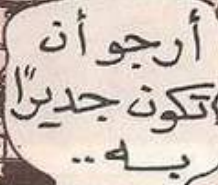 أرجو أن
تكون جديرًا
به..